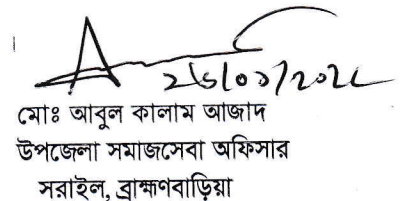 মোঃ আবুল কালাম আজাদ
উপজেলা সমাজসেবা অফিসার
সরাইল, ব্রাহ্মণবাড়িয়া